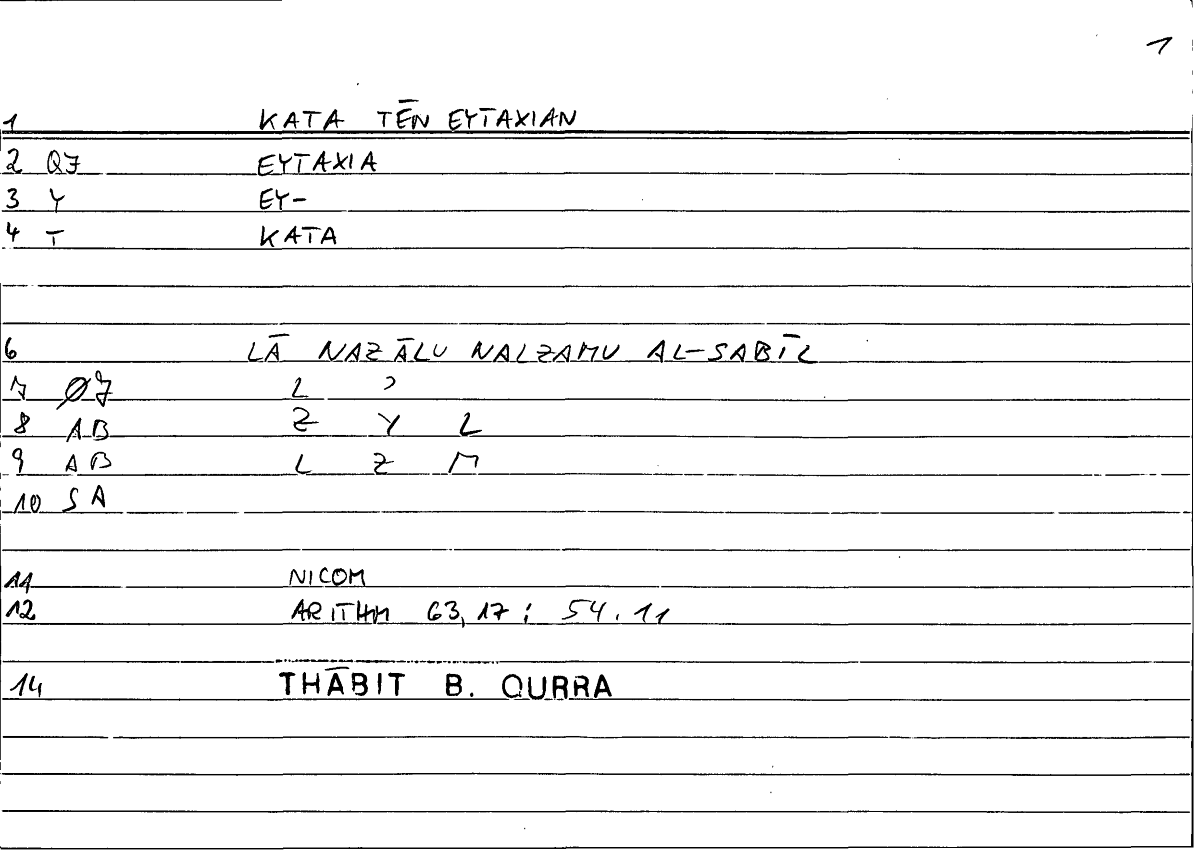 1
1 KATA TĒN EYTAXIAN
2 QJ EYTAXIA
3 Y EY-
4 T KATA
6 LĀ NAZĀLU NALZAMU AL-SABĪL
7 ØJ L ʾ
8 AB Z Y L
9 AB L Z M
10 SA
11 NICOM
12 ARITHM 63,17 : 54.11
14 THĀBIT B. QURRA